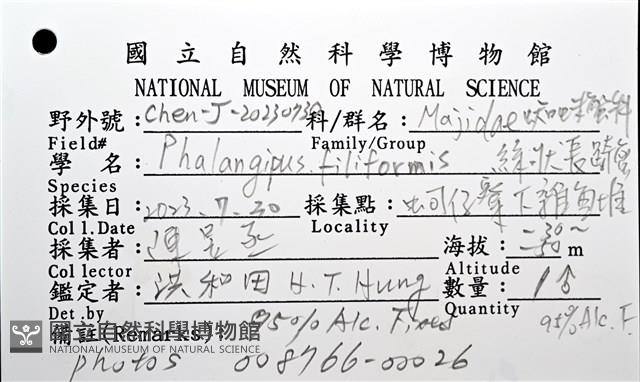 國立自然科學博物館
NATIONAL MUSEUM OF NATURAL SCIENCE
野外號: Chen-J-20230730 科/群名: Majidae 蜘蛛蟹科
Field# Family/Group
學 名: Phalangipus filiformis 絲狀長踦蟹
Species
採集日: 2023.7.30 採集點: 蚵仔寮下雜魚堆
Coll.Date Locality
採集者: 陳 丞 海拔: -30~-50 m
Collector Altitude
鑑定者: 洪和田 H.T. Hung 數量: 1♂
Det.by Quantity
備註(Remarks): 95% Alc. Fixed 95% Alc. F.
國立自然科學博物館
NATIONAL MUSEUM OF NATURAL SCIENCE
photos 008766-00026